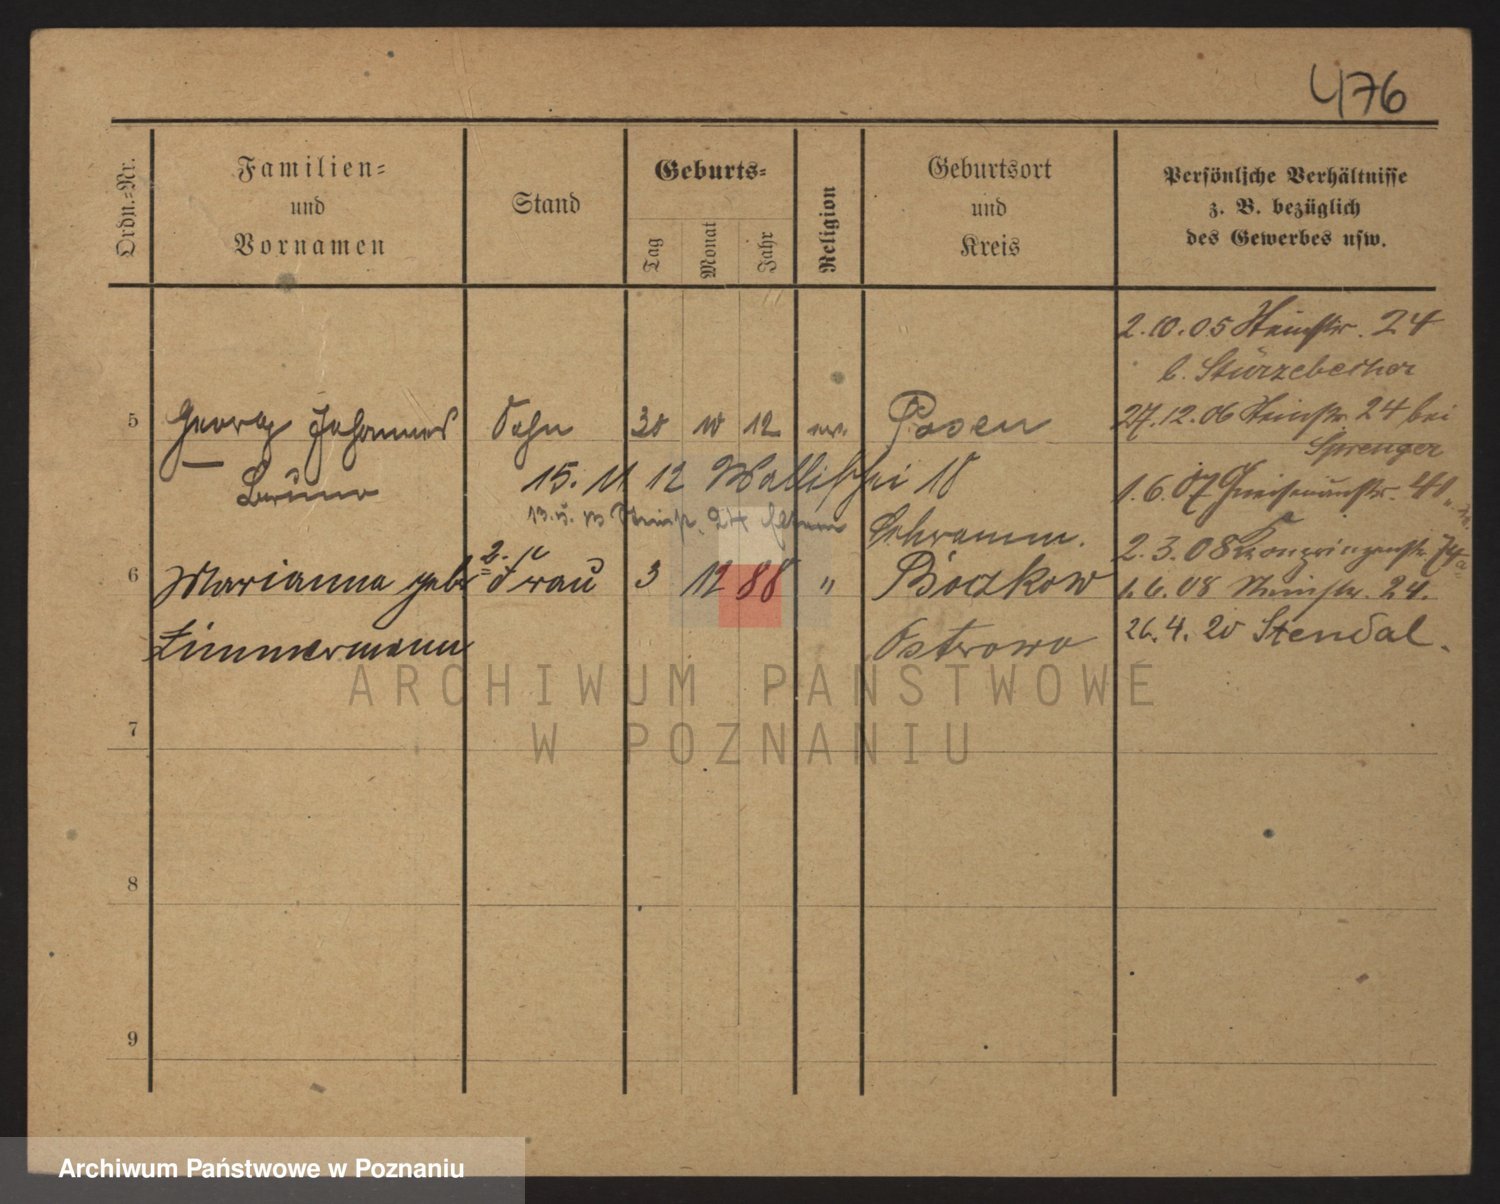 476
Ordn.=Nr.
Familien=
und
Vornamen
Stand
Geburts=
Tag
Monat
Jahr
Religion
Geburtsort
und
Kreis
Persönliche Verhältnisse
z. B. bezüglich
des Gewerbes usw.
2.10.05 Steinstr. 24
b. Stürzebecher
5 Georg Johannes Sohn 30 10 12 ev. Posen
27.12.06 Steinstr. 24 bei
Sprenger
Bruno
15. 11 12 Wallischei 18
1.6.07 Gneisenaustr. 41
Steinstr. 24 Eltern
Schramm.
2.3.08 Kronprinzenstr. 74a
6 Marianna geb. 2. Frau 3 12 88 " Boczkow
1.6.08 Steinstr. 24.
Zimmermann
Ostrowo
26.4.20 Stendal.
7
8
9
ARCHIWUM PAŃSTWOWE
W POZNANIU
Archiwum Państwowe w Poznaniu